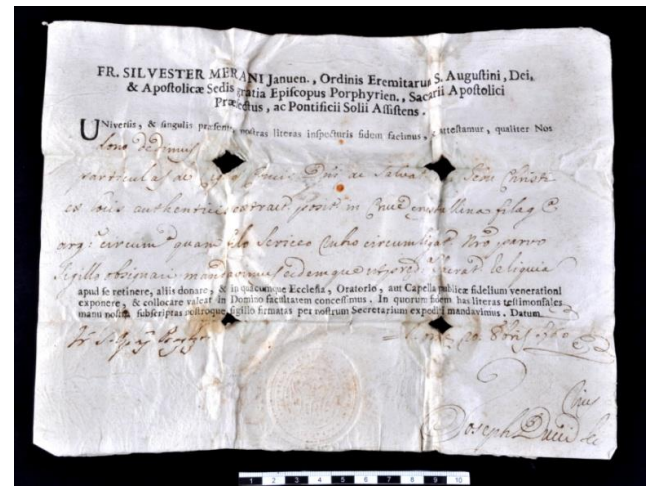 FR. SILVESTER MERANI Januen., Ordinis Eremitarum S. Augustini, Dei,
& Apostolicæ Sedis gratia Episcopus Porphyrien., Sacrarii Apostolici
Præfectus, ac Pontificii Solii Assistens.
UNiversis, & singulis præsentes nostras literas inspecturis fidem facimus, & attestamur, qualiter Nos
dono dedimus
particulas de Ligno Crucis Dni ac Salvat Jesu Christi
ex locis authenticis extract posit in Cruce crystallina filag
arg circum quam filo sericeo rubro circumligat Nro parvo
sigillo obsignari mandavimus eademque
apud se retinere, aliis donare, & in quacumque Ecclesia, Oratorio, aut Capella publicæ fidelium venerationi
exponere, & collocare valeat in Domino facultatem concessimus. In quorum fidem has literas testimoniales
manu nostra subscriptas nostroque sigillo firmatas per nostrum Secretarium expediri mandavimus. Datum
Joseph
1 2 3 4 5 6 7 8 9 10